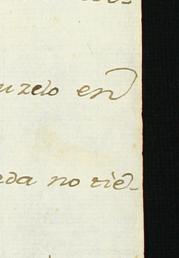 uzelo en
eda no tie-